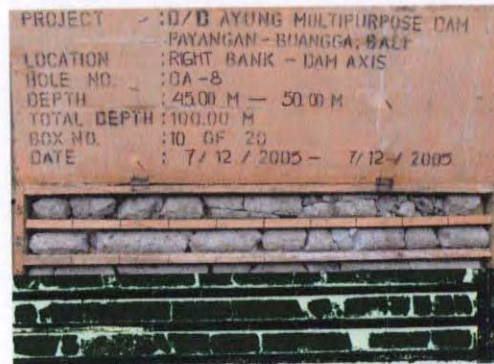 PROJECT - : D/D AYUNG MULTIPURPOSE DAM
PAYANGAN - BUANGGA, BALI
LOCATION : RIGHT BANK - DAM AXIS
HOLE NO. : DA-8
DEPTH : 45.00 M — 50.00 M
TOTAL DEPTH : 100.00 M
BOX NO. : 10 OF 20
DATE : 7/12/2005 - 7/12/2005